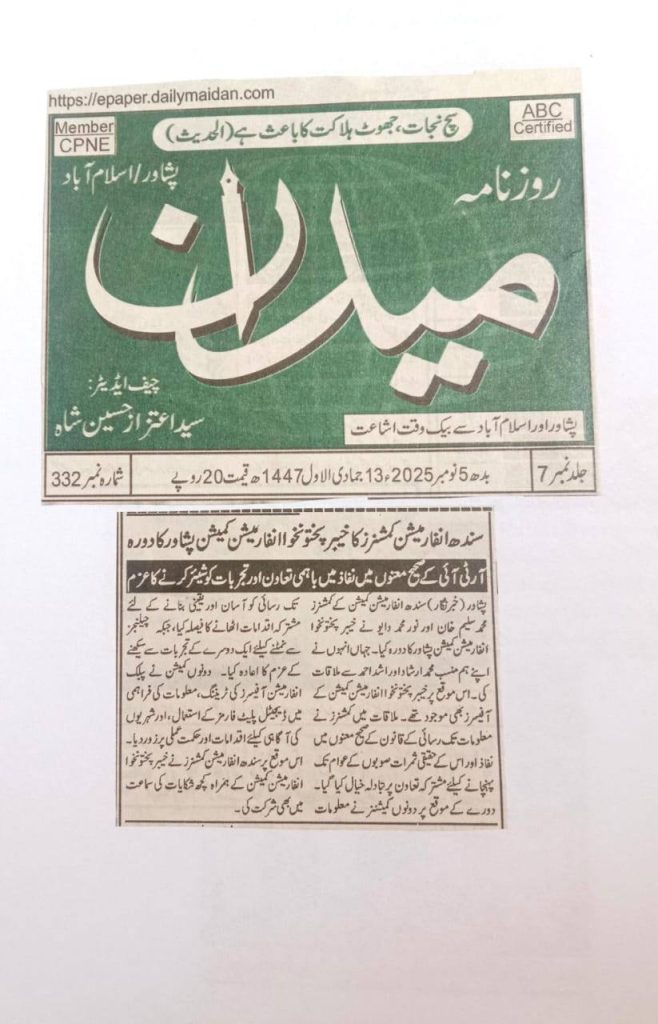 https://epaper.dailymaidan.com
Member
CPNE
سچ نجات، جھوٹ ہلاکت کا باعث ہے (الحدیث)
ABC
Certified
پشاور/اسلام آباد
روزنامہ
میدان
چیف ایڈیٹر:
سید اعتزاز حسین شاہ
پشاور اور اسلام آباد سے بیک وقت اشاعت
جلد نمبر 7
بدھ 5 نومبر 2025ء 13 جمادی الاول 1447ھ قیمت 20 روپے
شمارہ نمبر 332
سندھ انفارمیشن کمشنرز کا خیبر پختونخوا انفارمیشن کمیشن پشاور کا دورہ
آر ٹی آئی کے صحیح معنوں میں نفاذ میں باہمی تعاون اور تجربات کو شیئر کرنے کا عزم
پشاور (خبر نگار) سندھ انفارمیشن کمیشن کے کمشنرز
محمد سلیم خان اور نور محمد دایو نے خیبر پختونخوا
انفارمیشن کمیشن پشاور کا دورہ کیا۔ جہاں انہوں نے
اپنے ہم منصب محمد ارشاد اور اسد احمد سے ملاقات
کی۔ اس موقع پر خیبر پختونخوا انفارمیشن کمیشن کے
آفیسرز بھی موجود تھے۔ ملاقات میں کمشنرز نے
معلومات تک رسائی کے قانون کے صحیح معنوں میں
نفاذ اور اس کے حقیقی ثمرات صوبوں کے عوام تک
پہنچانے کیلئے مشترکہ تعاون پر تبادلہ خیال کیا گیا۔
دورے کے موقع پر دونوں کمیشنز نے معلومات
تک رسائی کو آسان اور یقینی بنانے کے لئے
مشترکہ اقدامات اٹھانے کا فیصلہ کیا، جبکہ چیلنجز
سے نمٹنے کیلئے ایک دوسرے کے تجربات سے سیکھنے
کے عزم کا اعادہ کیا۔ دونوں کمیشن نے پبلک
انفارمیشن آفیسرز کی ٹریننگ، معلومات کی فراہمی
میں ڈیجیٹل پلیٹ فارمز کے استعمال، اور شہریوں
کی آگاہی کیلئے اقدامات اور حکمت عملی پر زور دیا۔
اس موقع پر سندھ انفارمیشن کمشنرز نے خیبر پختونخوا
انفارمیشن کمیشن کے ہمراہ کچھ شکایات کی سماعت
میں بھی شرکت کی۔